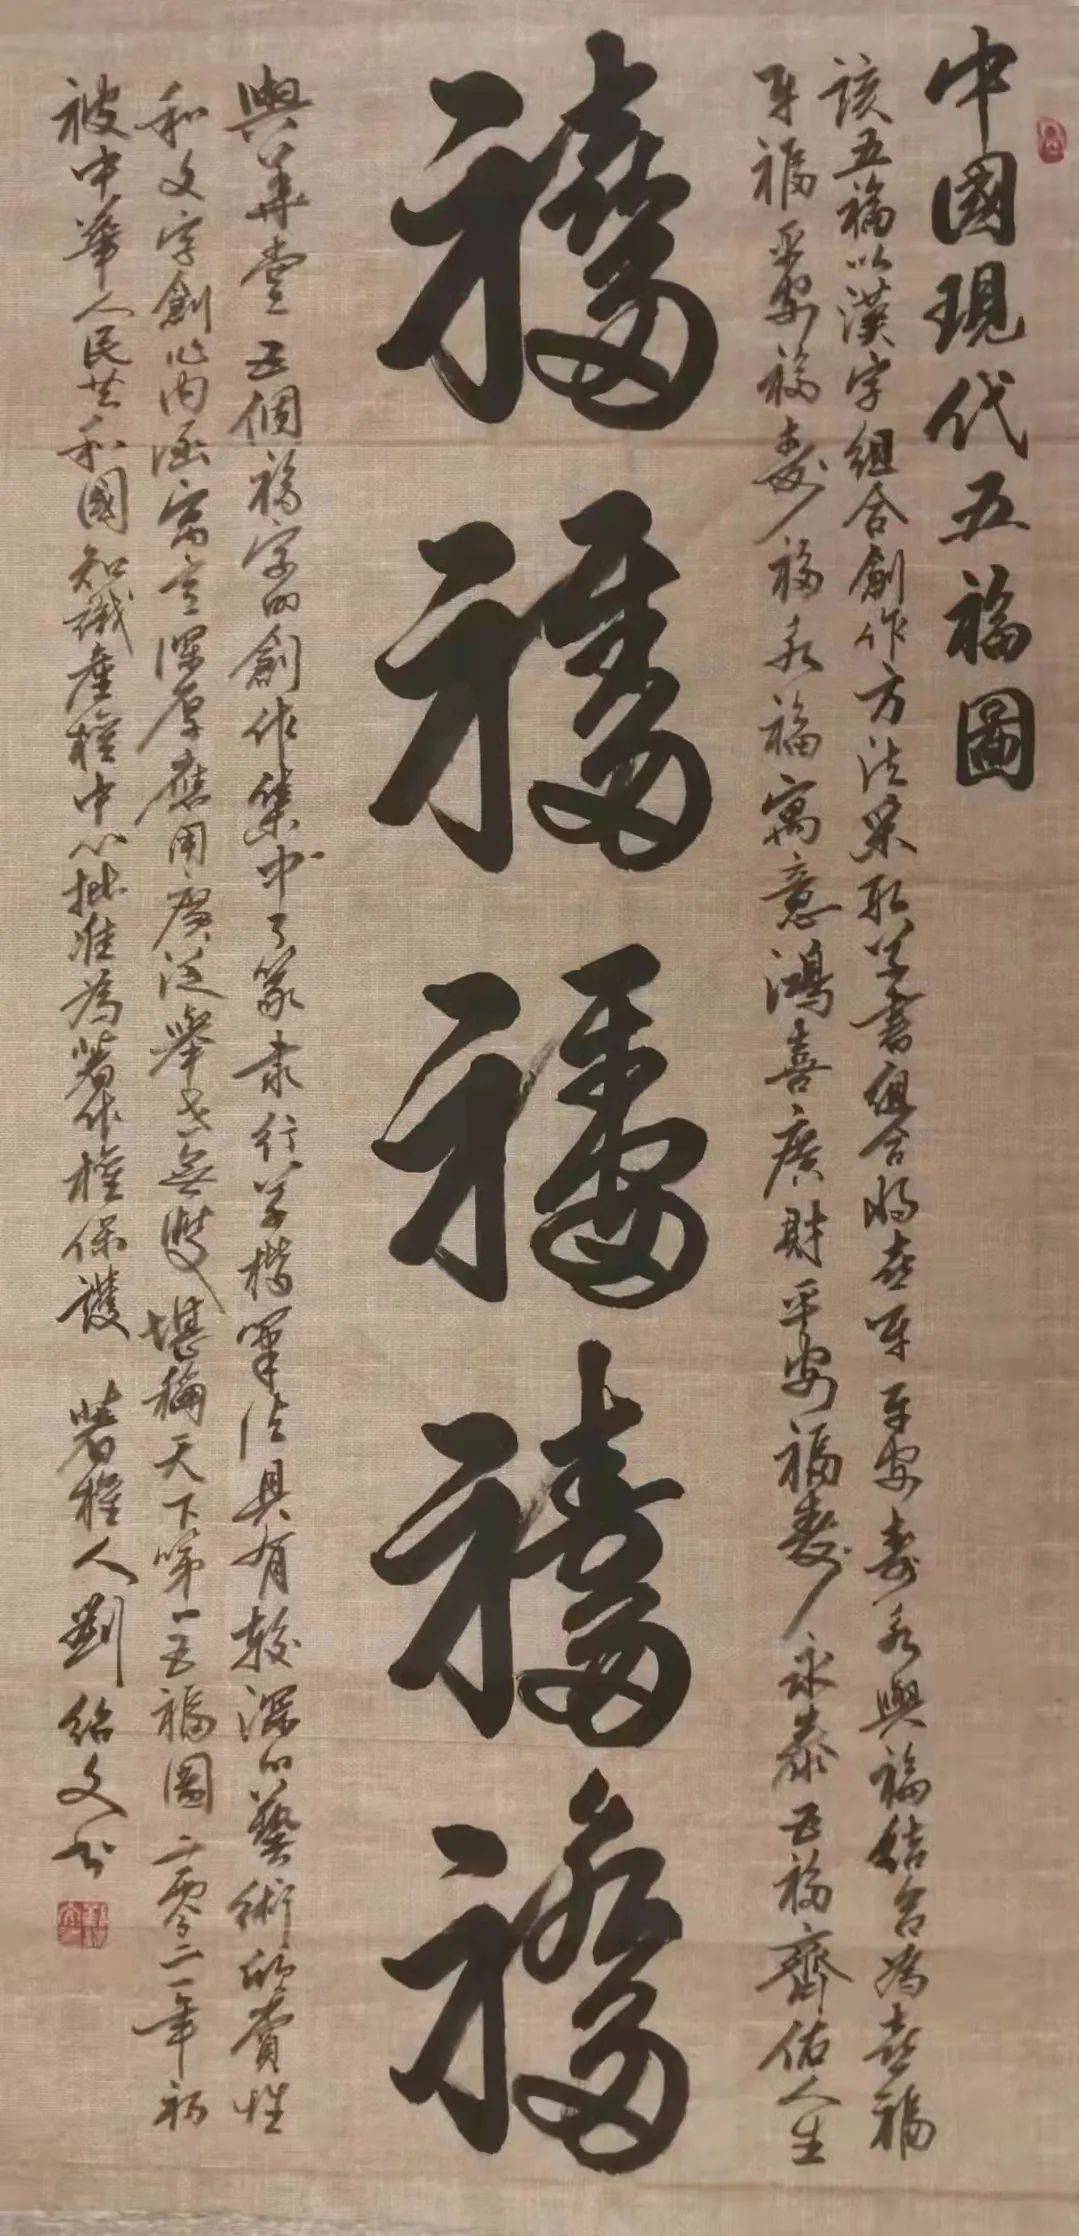 中國現代五福圖
該五福以漢字組合創作方法采取草書組合將喜財平安壽永與福結合為喜福
財福平安福壽福永福寓意鴻喜廣財平安福壽永泰五福齊佑人生
福
福
福
福
福
興華堂五個福字的創作集中了篆隸行草楷筆法具有較深的藝術欣賞性
和文字創心內涵寓意深厚應用廣泛舉世無雙堪稱天下第一五福圖二零二一年初
被中華人民共和國知識產權中心批准為著作權保護 著權人劉紹文書